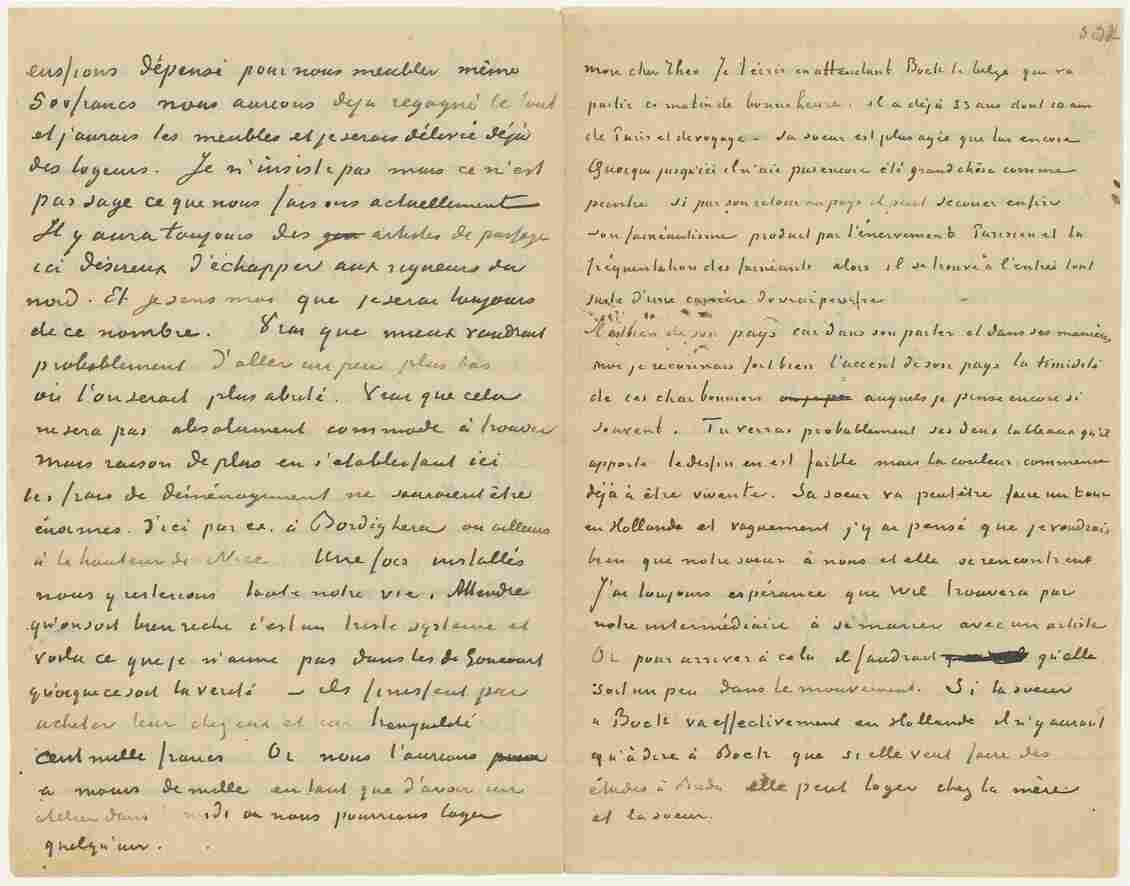 eussions dépensé pour nous meubler même
500 francs nous aurions deja regagné le tout
et j'aurais les meubles et je serais délivré déjà
des logeurs. Je n'insiste pas mais ce n'est
pas sage ce que nous faisons actuellement
Il y aura toujours des artistes de passage
ici désireux d'échapper aux rigueurs du
nord. Et je sens moi que je serai toujours
de ce nombre. Vrai que mieux vaudrait
probablement d'aller un peu plus bas
où l'on serait plus abrité. Vrai que cela
ne sera pas absolument commode à trouver
mais raison de plus en s'etablissant ici
les frais de déménagement ne sauraient être
énormes. D'ici par ex. à Bordighera ou ailleurs
à la hauteur de Nice Une fois installés
nous y resterions toute notre vie. Attendre
qu'on soit bien riche c'est un triste systeme et
voila ce que je n'aime pas dans les de Goncourt
quoique ce soit la verité – ils finissent par
acheter leur chez eux et leur tranquilité
cent mille francs Or nous l'aurions
a moins de mille en tant que d'avoir un
atelier dans midi ou nous pourrions loger
quelqu'un.
532
mon cher Theo Je t'écris en attendant Bock le belge qui va
partir ce matin de bonne heure. il a déjà 33 ans dont 10 ans
de Paris et de voyage – sa soeur est plus agée que lui encore
Quoique jusqu'ici il n'aie pas encore été grand chôse comme
peintre si par son retour au pays il peut secouer enfin
son fainéantisme produit par l'énervement Parisien et la
fréquentation des fainéants alors il se trouve à l'entrée tout
juste d'une carrière de vrai peintre
Il est bien de son pays car dans son parler et dans ses manieres
moi je reconnais fort bien l'accent de son pays la timidité
de ces charbonniers auxquels je pense encore si
souvent. Tu verras probablement ses deux tableaux qu'il
apporte le dessin en est faible mais la couleur commence
déjà à être vivante. Sa soeur va peut être faire un tour
en Hollande et vaguement j'y ai pensé que je voudrais
bien que notre soeur à nous et elle se rencontrent
J'ai toujours espérance que Wil trouvera par
notre intermédiaire à se marier avec un artiste
Or pour arriver à cela il faudrait qu'elle
soit un peu dans le mouvement. Si la soeur
à Bock va effectivement en Hollande il n'y aurait
qu'à dire à Bock que si elle veut faire des
études à Breda elle peut loger chez la mère
et la soeur.